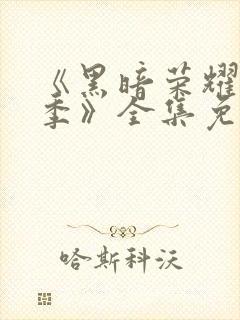 《黑暗荣耀
季》全集免
哈斯科沃